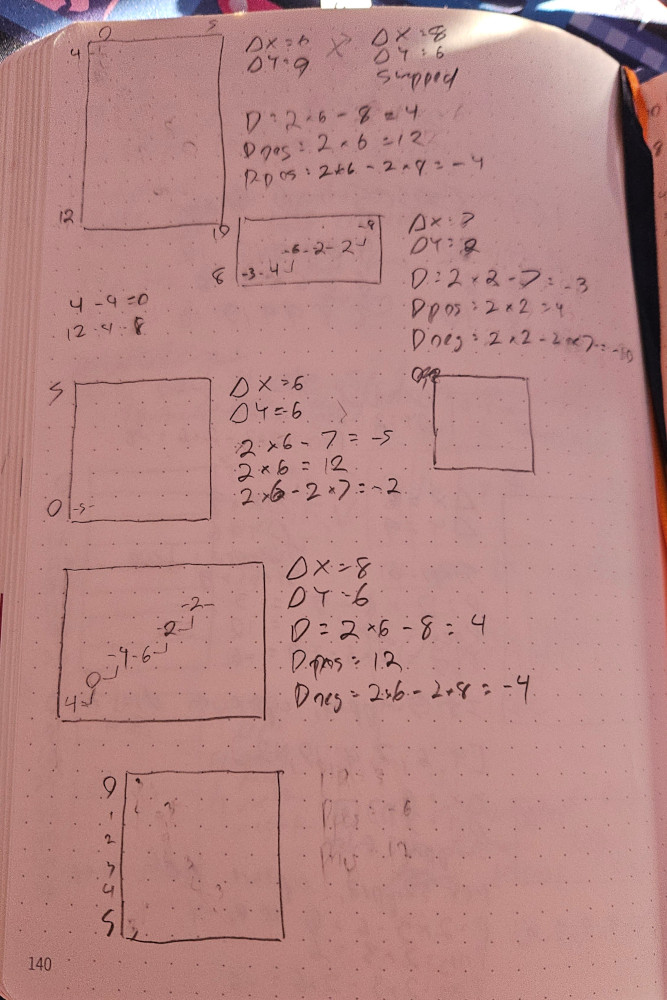 0 5
4
ΔX=6 ΔX=8
ΔY=9 ΔY=6
Swapped
D=2×6-8=4
Dneg=2×6=12
Dpos=2×6-2×9=-4
12
-8
-6-2-2
-3-4
8
ΔX=7
ΔY=2
D=2×2-7=-3
Dpos=2×2=4
Dneg=2×2-2×7=-10
4-4=0
12-4=8
5
0
-5-
ΔX=6
ΔY=6
2×6-7=-5
2×6=12
2×6-2×7=-2
-2-
-2
-4-6
0
4
ΔX=8
ΔY=6
D=2×6-8=4
Dpos=12
Dneg=2×6-2×8=-4
0
1
2
3
4
5
140